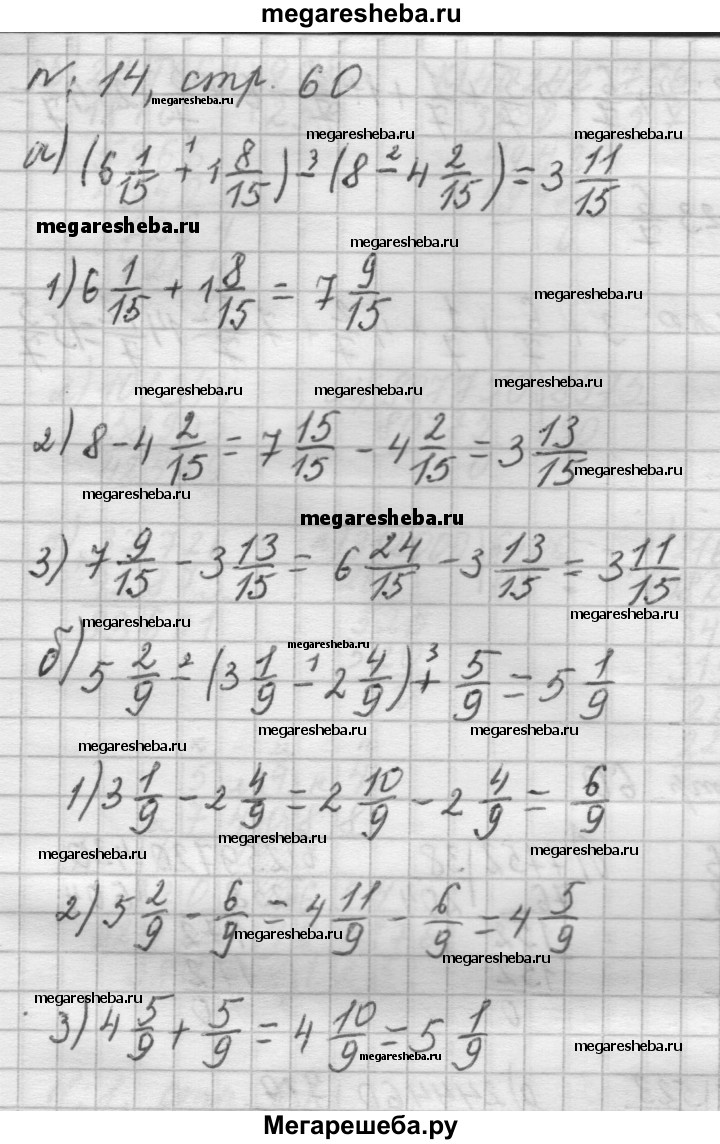 megaresheba.ru
№ 14, стр. 60
megaresheba.ru
megaresheba.ru megaresheba.ru
а) (6 1/15 + 1 8/15) - (8 - 4 2/15) = 3 11/15
1 3 2
megaresheba.ru
megaresheba.ru
1) 6 1/15 + 1 8/15 = 7 9/15
megaresheba.ru
megaresheba.ru megaresheba.ru megaresheba.ru
2) 8 - 4 2/15 = 7 15/15 - 4 2/15 = 3 13/15
megaresheba.ru
megaresheba.ru
megaresheba.ru
3) 7 9/15 - 3 13/15 = 6 24/15 - 3 13/15 = 3 11/15
megaresheba.ru
megaresheba.ru
megaresheba.ru
б) 5 2/9 - (3 1/9 - 2 4/9) + 5/9 = 5 1/9
2 1 3
megaresheba.ru megaresheba.ru
megaresheba.ru
1) 3 1/9 - 2 4/9 = 2 10/9 - 2 4/9 = 6/9
megaresheba.ru
megaresheba.ru megaresheba.ru
2) 5 2/9 - 6/9 = 4 11/9 - 6/9 = 4 5/9
megaresheba.ru
megaresheba.ru
megaresheba.ru
3) 4 5/9 + 5/9 = 4 10/9 = 5 1/9
megaresheba.ru
megaresheba.ru
Мегарешеба.ру